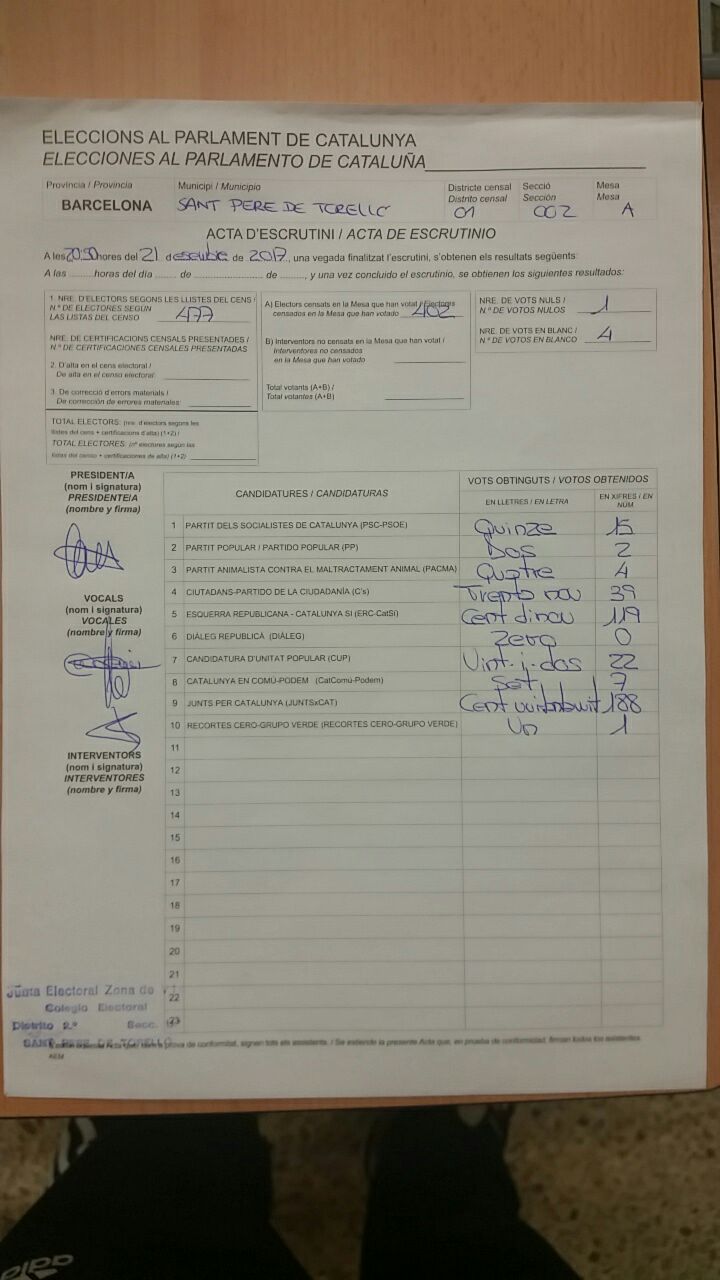 ELECCIONS AL PARLAMENT DE CATALUNYA
ELECCIONES AL PARLAMENTO DE CATALUÑA
Provincia / Provincia Municipi / Municipio Districte censal Secció Mesa
Distrito censal Sección Mesa
BARCELONA SANT PERE DE TORELLO 01 002 A
ACTA D'ESCRUTINI / ACTA DE ESCRUTINIO
A les 20:50 hores del 21 de de 2017, una vegada finalitzat l'escrutini, s'obtenen els resultats següents:
A las horas del día de de , y una vez concluido el escrutinio, se obtienen los siguientes resultados:
1. NRE. D'ELECTORS SEGONS LES LLISTES DEL CENS /
N.º DE ELECTORES SEGÚN
LAS LISTAS DEL CENSO 477
NRE. DE CERTIFICACIONS CENSALS PRESENTADES /
N.º DE CERTIFICACIONES CENSALES PRESENTADAS
2. D'alta en el cens electoral /
De alta en el censo electoral:
3. De correcció d'errors materials /
De corrección de errores materiales:
TOTAL ELECTORS: (nre. d'electors segons les
llistes del cens + certificacions d'alta) (1+2) /
TOTAL ELECTORES: (nº electores según las
listas del censo + certificaciones de alta) (1+2)
A) Electors censats en la Mesa que han votat / Electores
censados en la Mesa que han votado 402
B) Interventors no censats en la Mesa que han votat /
Interventores no censados
en la Mesa que han votado
Total votants (A+B) /
Total votantes (A+B)
NRE. DE VOTS NULS /
N.º DE VOTOS NULOS 1
NRE. DE VOTS EN BLANC /
N.º DE VOTOS EN BLANCO 4
PRESIDENT/A
(nom i signatura)
PRESIDENTE/A
(nombre y firma)
VOCALS
(nom i signatura)
VOCALES
(nombre y firma)
INTERVENTORS
(nom i signatura)
INTERVENTORES
(nombre y firma)
CANDIDATURES / CANDIDATURAS VOTS OBTINGUTS / VOTOS OBTENIDOS
EN LLETRES / EN LETRA EN XIFRES / EN NÚM
1 PARTIT DELS SOCIALISTES DE CATALUNYA (PSC-PSOE) Quinze 15
2 PARTIT POPULAR / PARTIDO POPULAR (PP) Dos 2
3 PARTIT ANIMALISTA CONTRA EL MALTRACTAMENT ANIMAL (PACMA) Quatre 4
4 CIUTADANS-PARTIDO DE LA CIUDADANÍA (C's) Trenta nou 39
5 ESQUERRA REPUBLICANA - CATALUNYA SI (ERC-CatSí) Cent dinou 119
6 DIÀLEG REPUBLICÀ (DIÀLEG) Zero 0
7 CANDIDATURA D'UNITAT POPULAR (CUP) Vint-i-dos 22
8 CATALUNYA EN COMÚ-PODEM (CatComú-Podem) Set 7
9 JUNTS PER CATALUNYA (JUNTSxCAT) Cent 188
10 RECORTES CERO-GRUPO VERDE (RECORTES CERO-GRUPO VERDE) Un 1
11
12
13
14
15
16
17
18
19
20
21
22
23
Junta Electoral Zona de
Colegio Electoral
Distrito 2.º Secc.
SANT PERE DE TORELLÓ
prova de conformitat, signen tots els assistents. / Se extiende la presente Acta que, en prueba de conformidad, firman todos los asistentes.
adidas